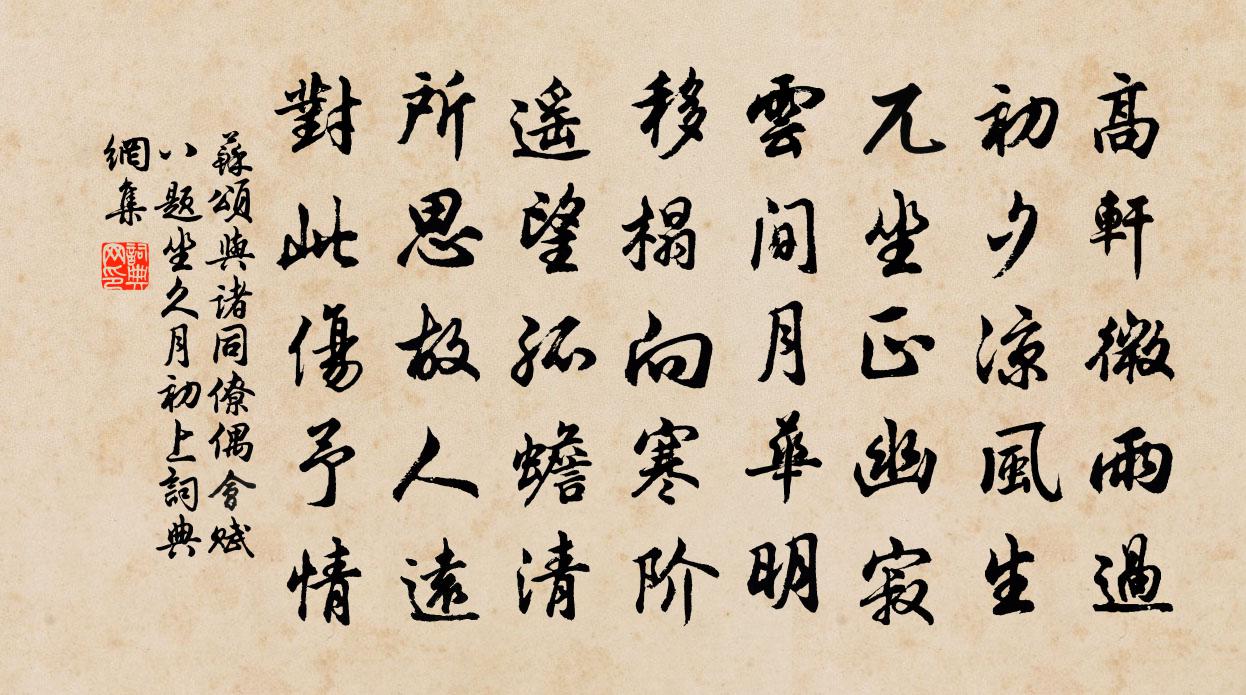 高軒微雨過
初夕涼風生
兀坐正幽寂
雲間月華明
移榻向寒阶
遥望孤蟾清
所思故人遠
對此傷予情
蘇頌與諸同僚偶會賦
八題坐久月初上詞典
網集
詞典
网印